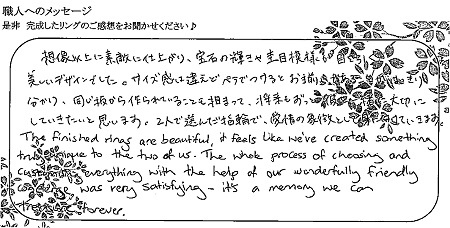 職人へのメッセージ
是非 完成したリングのご感想をお聞かせください♪
想像以上に素敵に仕上がり、宝石の輝きや杢目模様も
美しいデザインでした。サイズ感は違えどペアでつけるとお揃
分かり、同じ板から作られていることも相まって、将来もずっと 大切に
していきたいと思います。2人で選んだ指輪で、愛情の象徴として ています。
The finished rings are beautiful, it feels like we've created something
unique to the two of us. The whole process of choosing and
everything with the help of our wonderfully friendly
was very satisfying - it's a memory we can
forever.